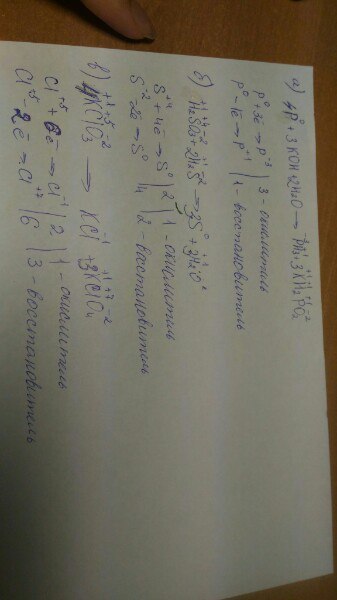 а) 4P⁰ + 3KOH + 3H₂O → P⁻³H₃ + 3KH₂PO₂
P⁰ + 3e → P⁻³ | 3 - окислитель
P⁰ - 1e → P⁺¹ | 1 - восстановитель
б) H₂⁺¹S⁺⁴O₃⁻² + 2H₂⁺¹S⁻² → 3S⁰ + 3H₂⁺¹O⁻²
S⁺⁴ + 4e → S⁰ | 2 | 1 - окислитель
S⁻² - 2e → S⁰ | 4 | 2 - восстановитель
в) 4K⁺¹Cl⁺⁵O₃⁻² → KCl⁻¹ + 3K⁺¹Cl⁺⁷O₄⁻²
Cl⁺⁵ + 6e → Cl⁻¹ | 2 | 1 - окислитель
Cl⁺⁵ - 2e → Cl⁺⁷ | 6 | 3 - восстановитель